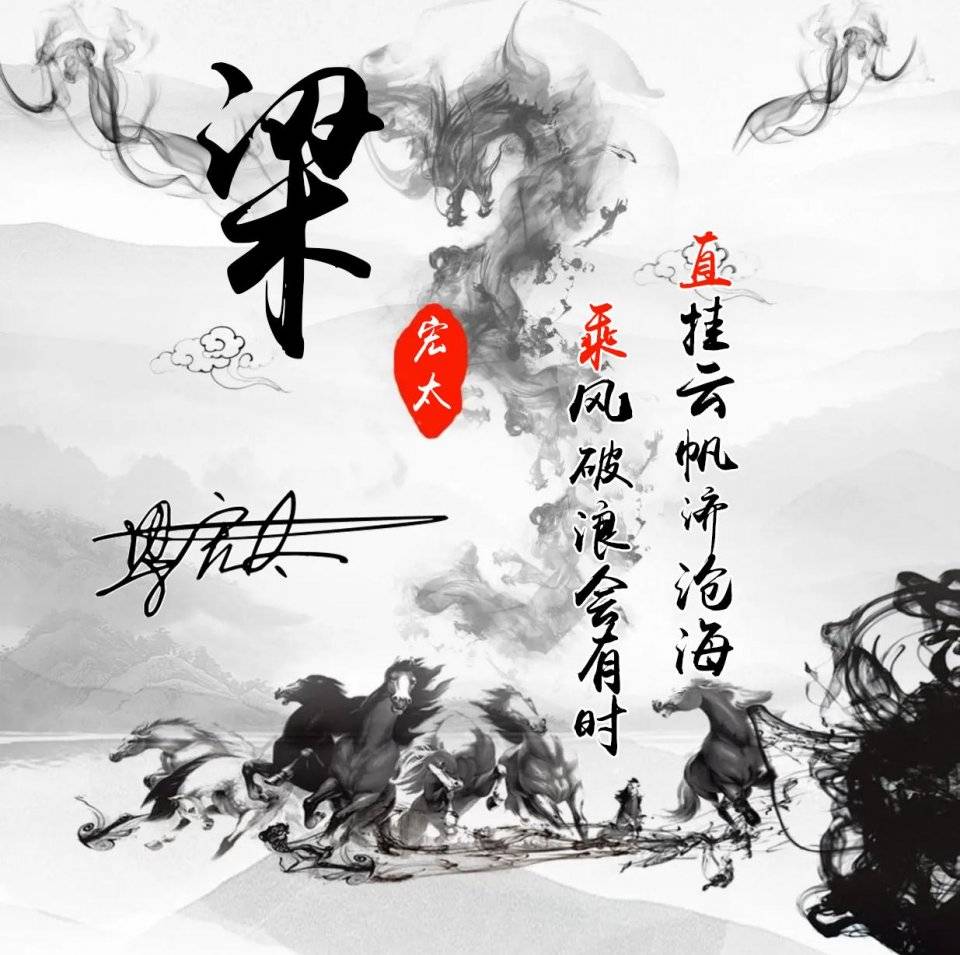 梁
宏太
直挂云帆济沧海
乘风破浪会有时
梁宏太